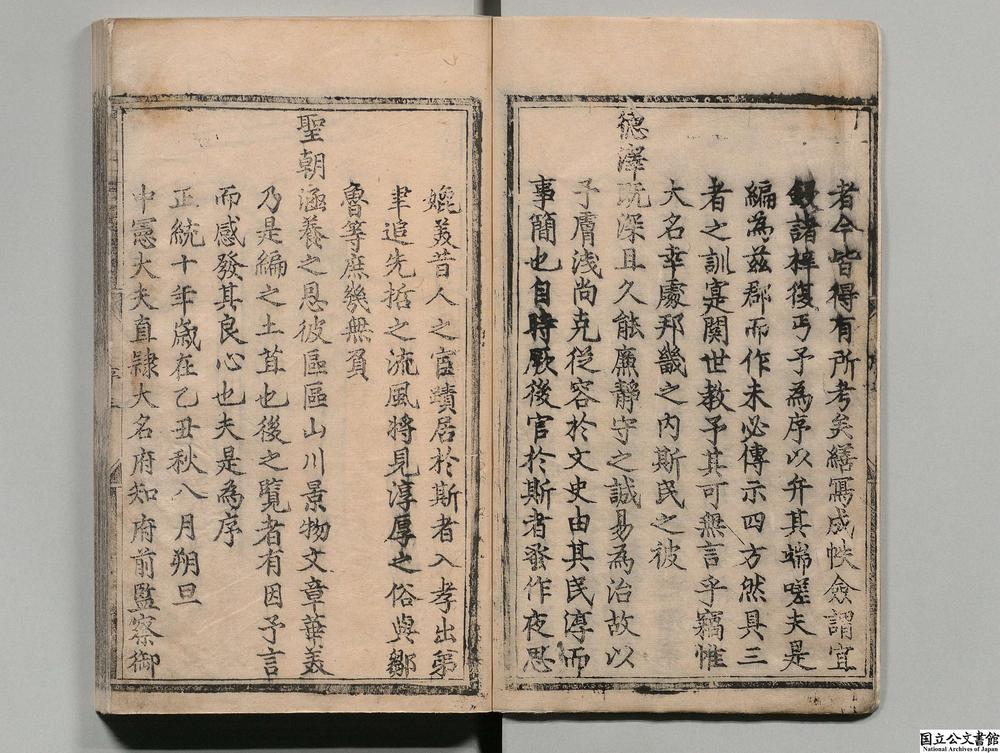 者今皆得有所考矣繕寫成帙僉謂宜
鋟諸梓復丐予為序以弁其端嗟夫是
編為茲郡而作未必傳示四方然具三
者之訓寔関世教予其可無言乎竊惟
大名幸處邦畿之内斯民之被
德澤既深且久能廉靜守之誠易為治故以
予膚淺尚克從容於文史由其民淳而
事簡也自時厥後官於斯者發作夜思
媲美昔人之宦蹟居於斯者入孝出第
聿追先哲之流風將見淳厚之俗與鄒
魯等庶幾無負
聖朝涵養之恩彼區區山川景物文章華美
乃是編之土苴也後之覽者有因予言
而感發其良心也夫是為序
正統十年歲在乙丑秋八月朔旦
中憲大夫直隸大名府知府前監察御
国立公文書館
National Archives of Japan